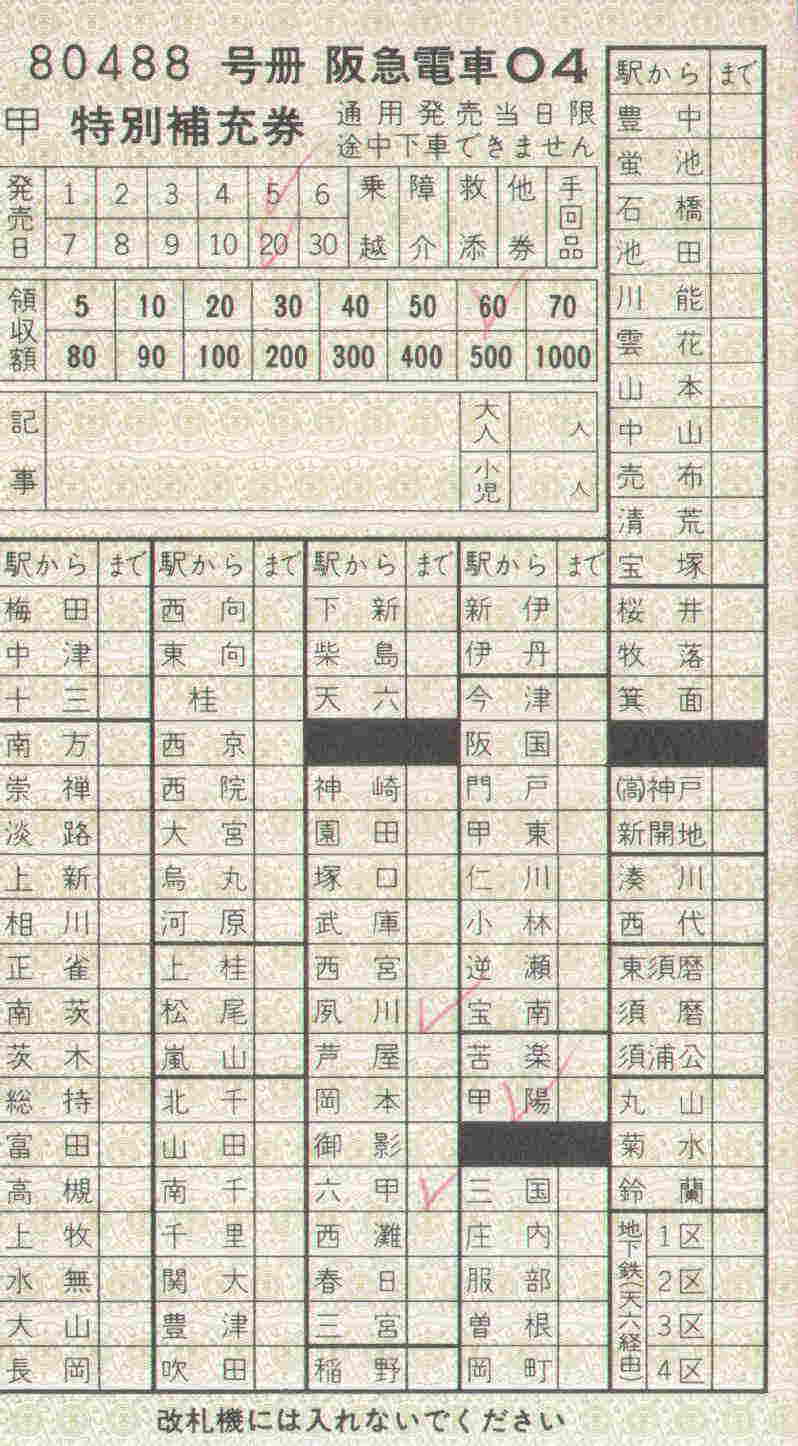 80488 号冊 阪急電車04
甲 特別補充券
通用発売当日限
途中下車できません
発売日 1 2 3 4 5 6 乗越 障介 救添 他券 手回品
7 8 9 10 20 30
領収額 5 10 20 30 40 50 60 70
80 90 100 200 300 400 500 1000
記事 大人 人
小児 人
駅から まで
梅田
中津
十三
南方
崇禅
淡路
上新
相川
正雀
南茨
茨木
総持
富田
高槻
上牧
水無
大山
長岡
駅から まで
西向
東向
桂
西京
西院
大宮
烏丸
河原
上桂
松尾
嵐山
北千
山田
南千
千里
関大
豊津
吹田
駅から まで
下新
柴島
天六
神崎
園田
塚口
武庫
西宮
夙川
芦屋
岡本
御影
六甲
西灘
春日
三宮
稲野
駅から まで
新伊
伊丹
今津
阪国
門戸
甲東
仁川
小林
逆瀬
宝南
苦楽
甲陽
三国
庄内
服部
曽根
岡町
駅から まで
豊中
蛍池
石橋
池田
川能
雲花
山本
中山
売布
清荒
宝塚
桜井
牧落
箕面
(高)神戸
新開地
湊川
西代
東須磨
須磨
須浦公
丸山
菊水
鈴蘭
地下鉄(天六経由)
1区
2区
3区
4区
改札機には入れないでください